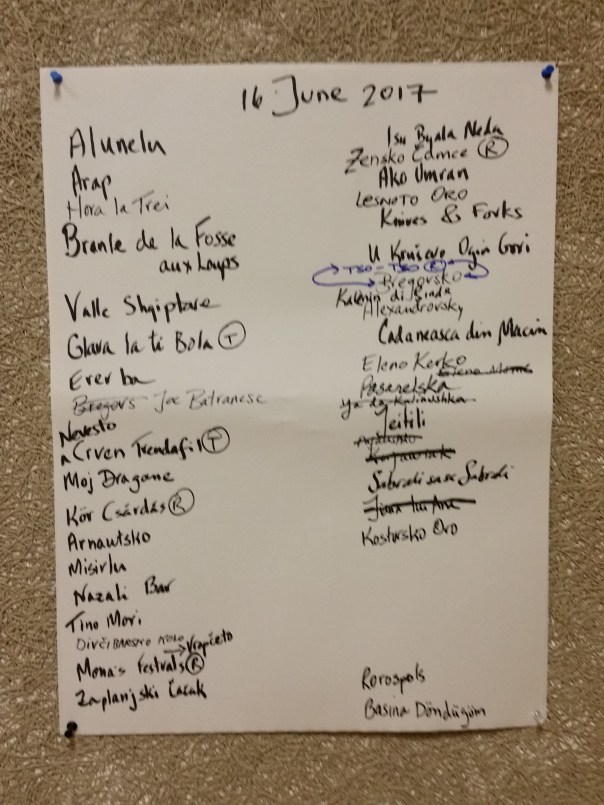 16 June 2017
Alunelu
Arap
Hora la Trei
Branle de la Fosse
aux Loups
Valle Shqiptare
Glava la ti Bola T
Ererba
Bregovs Joc Batranesc
Nevesto
Crven Trendafil T
Moj Dragane
Kör Csárdás R
Arnautsko
Misirlu
Nazali Bar
Tino Mori
DIVČIBARSKO KOLO
→ Vrapčeto
Mona's Festvals R
Zaplanjski Čačak
Isu Byala Neda
Žensko Čamče R
Ako Umran
LESNOTO ORO
Knives & Forks
U Kruševo Ogin Gori
TSO - TSO R
Bregovsko
Kalenin di Binda
Alexandrovsky
Cadaneasca din Macin
Eleno Kerko
Pasarelska
ya da Kalinushka
Jeitili
Sabradi sase Sabradi
Kostursko Oro
Rorospols
Basina Döndügüm